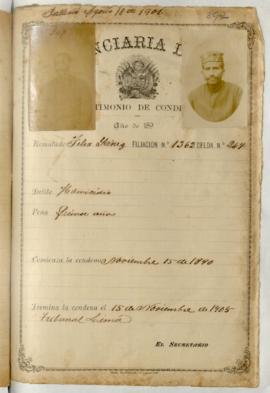 1906
NCIARIA
TIMONIO DE CONDE
Año de 189
Rematado Felix FILIACION N.° 1362 CELDA N.° 264
Delito Homicidio
Pena Quince años
Comienza la condena Noviembre 15 de 1890
Termina la condena el 15 de Noviembre de 1905
Tribunal Lima
EL SECRETARIO